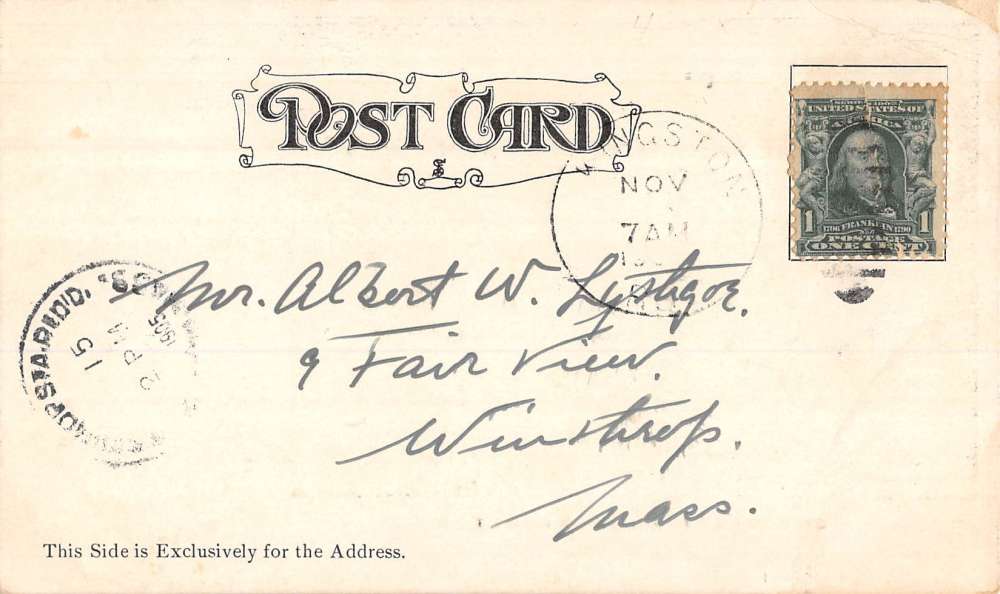 POST CARD
KINGSTON
NOV
7 AM
SERIES 1902
UNITED STATES OF
AMERICA
1 1
1706 FRANKLIN 1790
POSTAGE
ONE CENT
STA. REC'D.
15
2 PM
1905
Mr. Albert W. Lythgoe.
9 Fair View.
Winthrop.
Mass.
This Side is Exclusively for the Address.